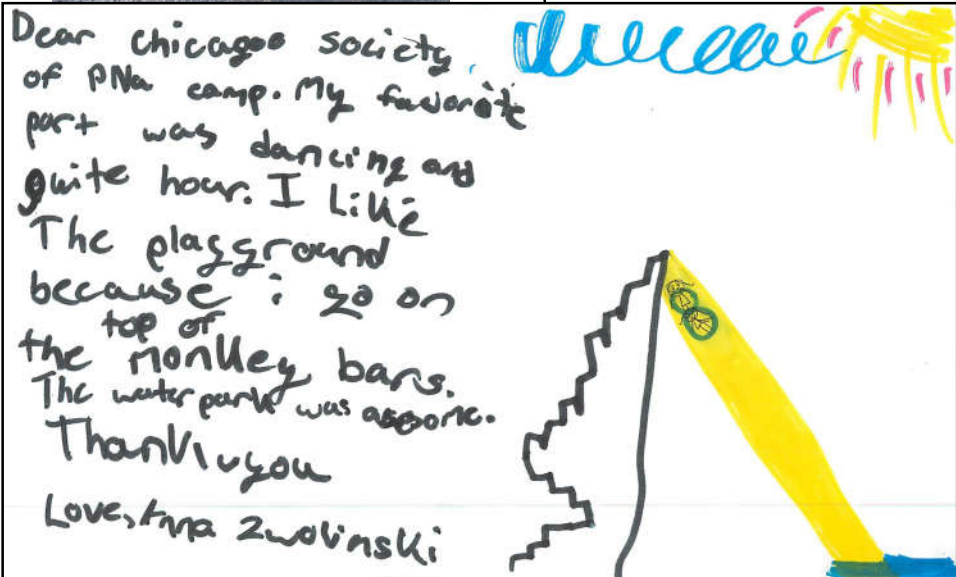 Dear chicagoo society
of PNa camp. My favorite
part was dancing and
quite hour. I Like
The playground
because i go on
top of
the monkey bars.
The water park was assome.
Thank you
Love, Anna Zwolinski